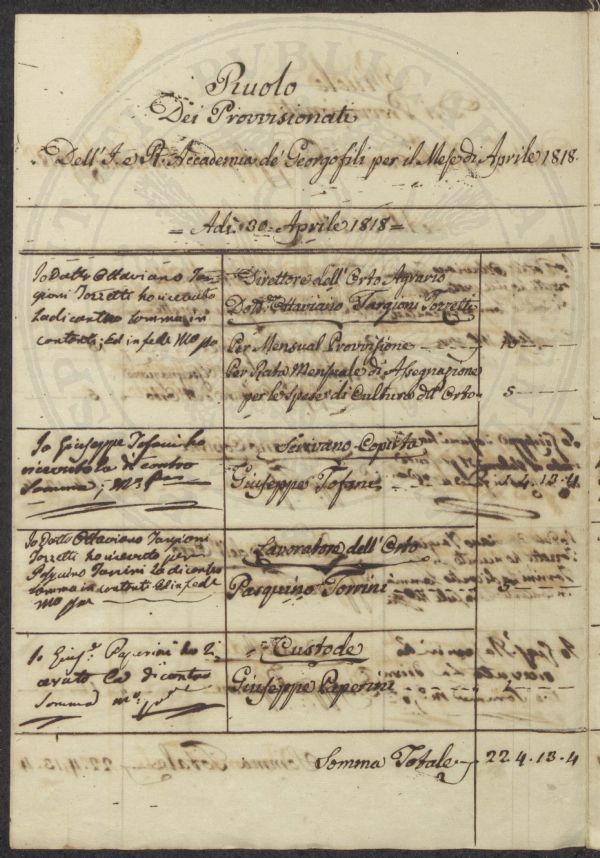 Ruolo
Dei Provvisionati
Dell'I. e R. Accademia de' Georgofili per il Mese di Aprile 1818.
= Adì 30. Aprile 1818 =
Io Dottr Ottaviano Tar-
gioni Tozzetti ho ricevuto
la di contro somma in
contanti; Ed in fede Mo ppa
Direttore dell'Orto Agrario
Dottr. Ottaviano Targioni Tozzetti
Per Mensual Provvisione 10
Per Rata Mensuale di Assegnazione
per le spese di Cultura do. Orto 5
Io Giuseppe Tofani ho
ricevuto la di contro
Somma, Mo ppa
Scrivano Copista
Giuseppe Tofani 4.13.4
Io Dottr Ottaviano Targioni
Tozzetti ho ricevuto per
Pasquino Torrini la di contro
somma in contanti Ed in fede
Mo ppa
Lavoratore dell'Orto
Pasquino Torrini
Io Giusp.e Paperini ho ri
cevuto la di contro
Somma mo. ppa
Custode
Giuseppe Paperini
Somma Totale 22.4.13.4